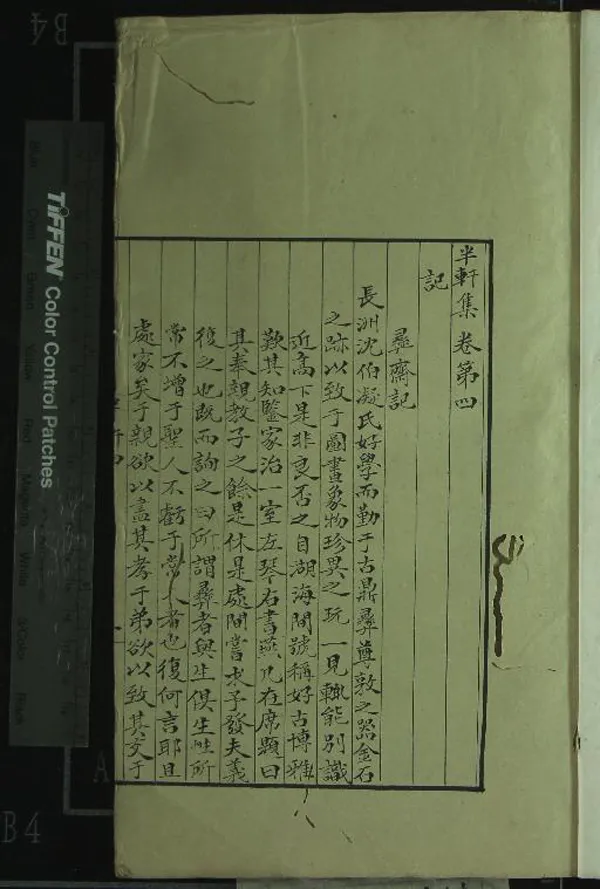 半軒集卷第四
記
彞齋記
長洲沈伯凝氏好學而勤于古鼎彞尊敦之器金石
之跡以致于圖書象物珍異之玩一見輒能別識
近高下是非良否之自湖海間號稱好古博雅
歎其知鑒家治一室左琴右書燕几在席題曰
其奉親教子之餘是休是處間嘗求予發夫義
復之也既而詢之曰所謂彞者與生俱生性所
常不增于聖人不虧于常人者也復何言耶且
處家矣于親欲以盡其孝于弟欲以致其友于
TIFFEN Color Control Patches
B4
B4
A